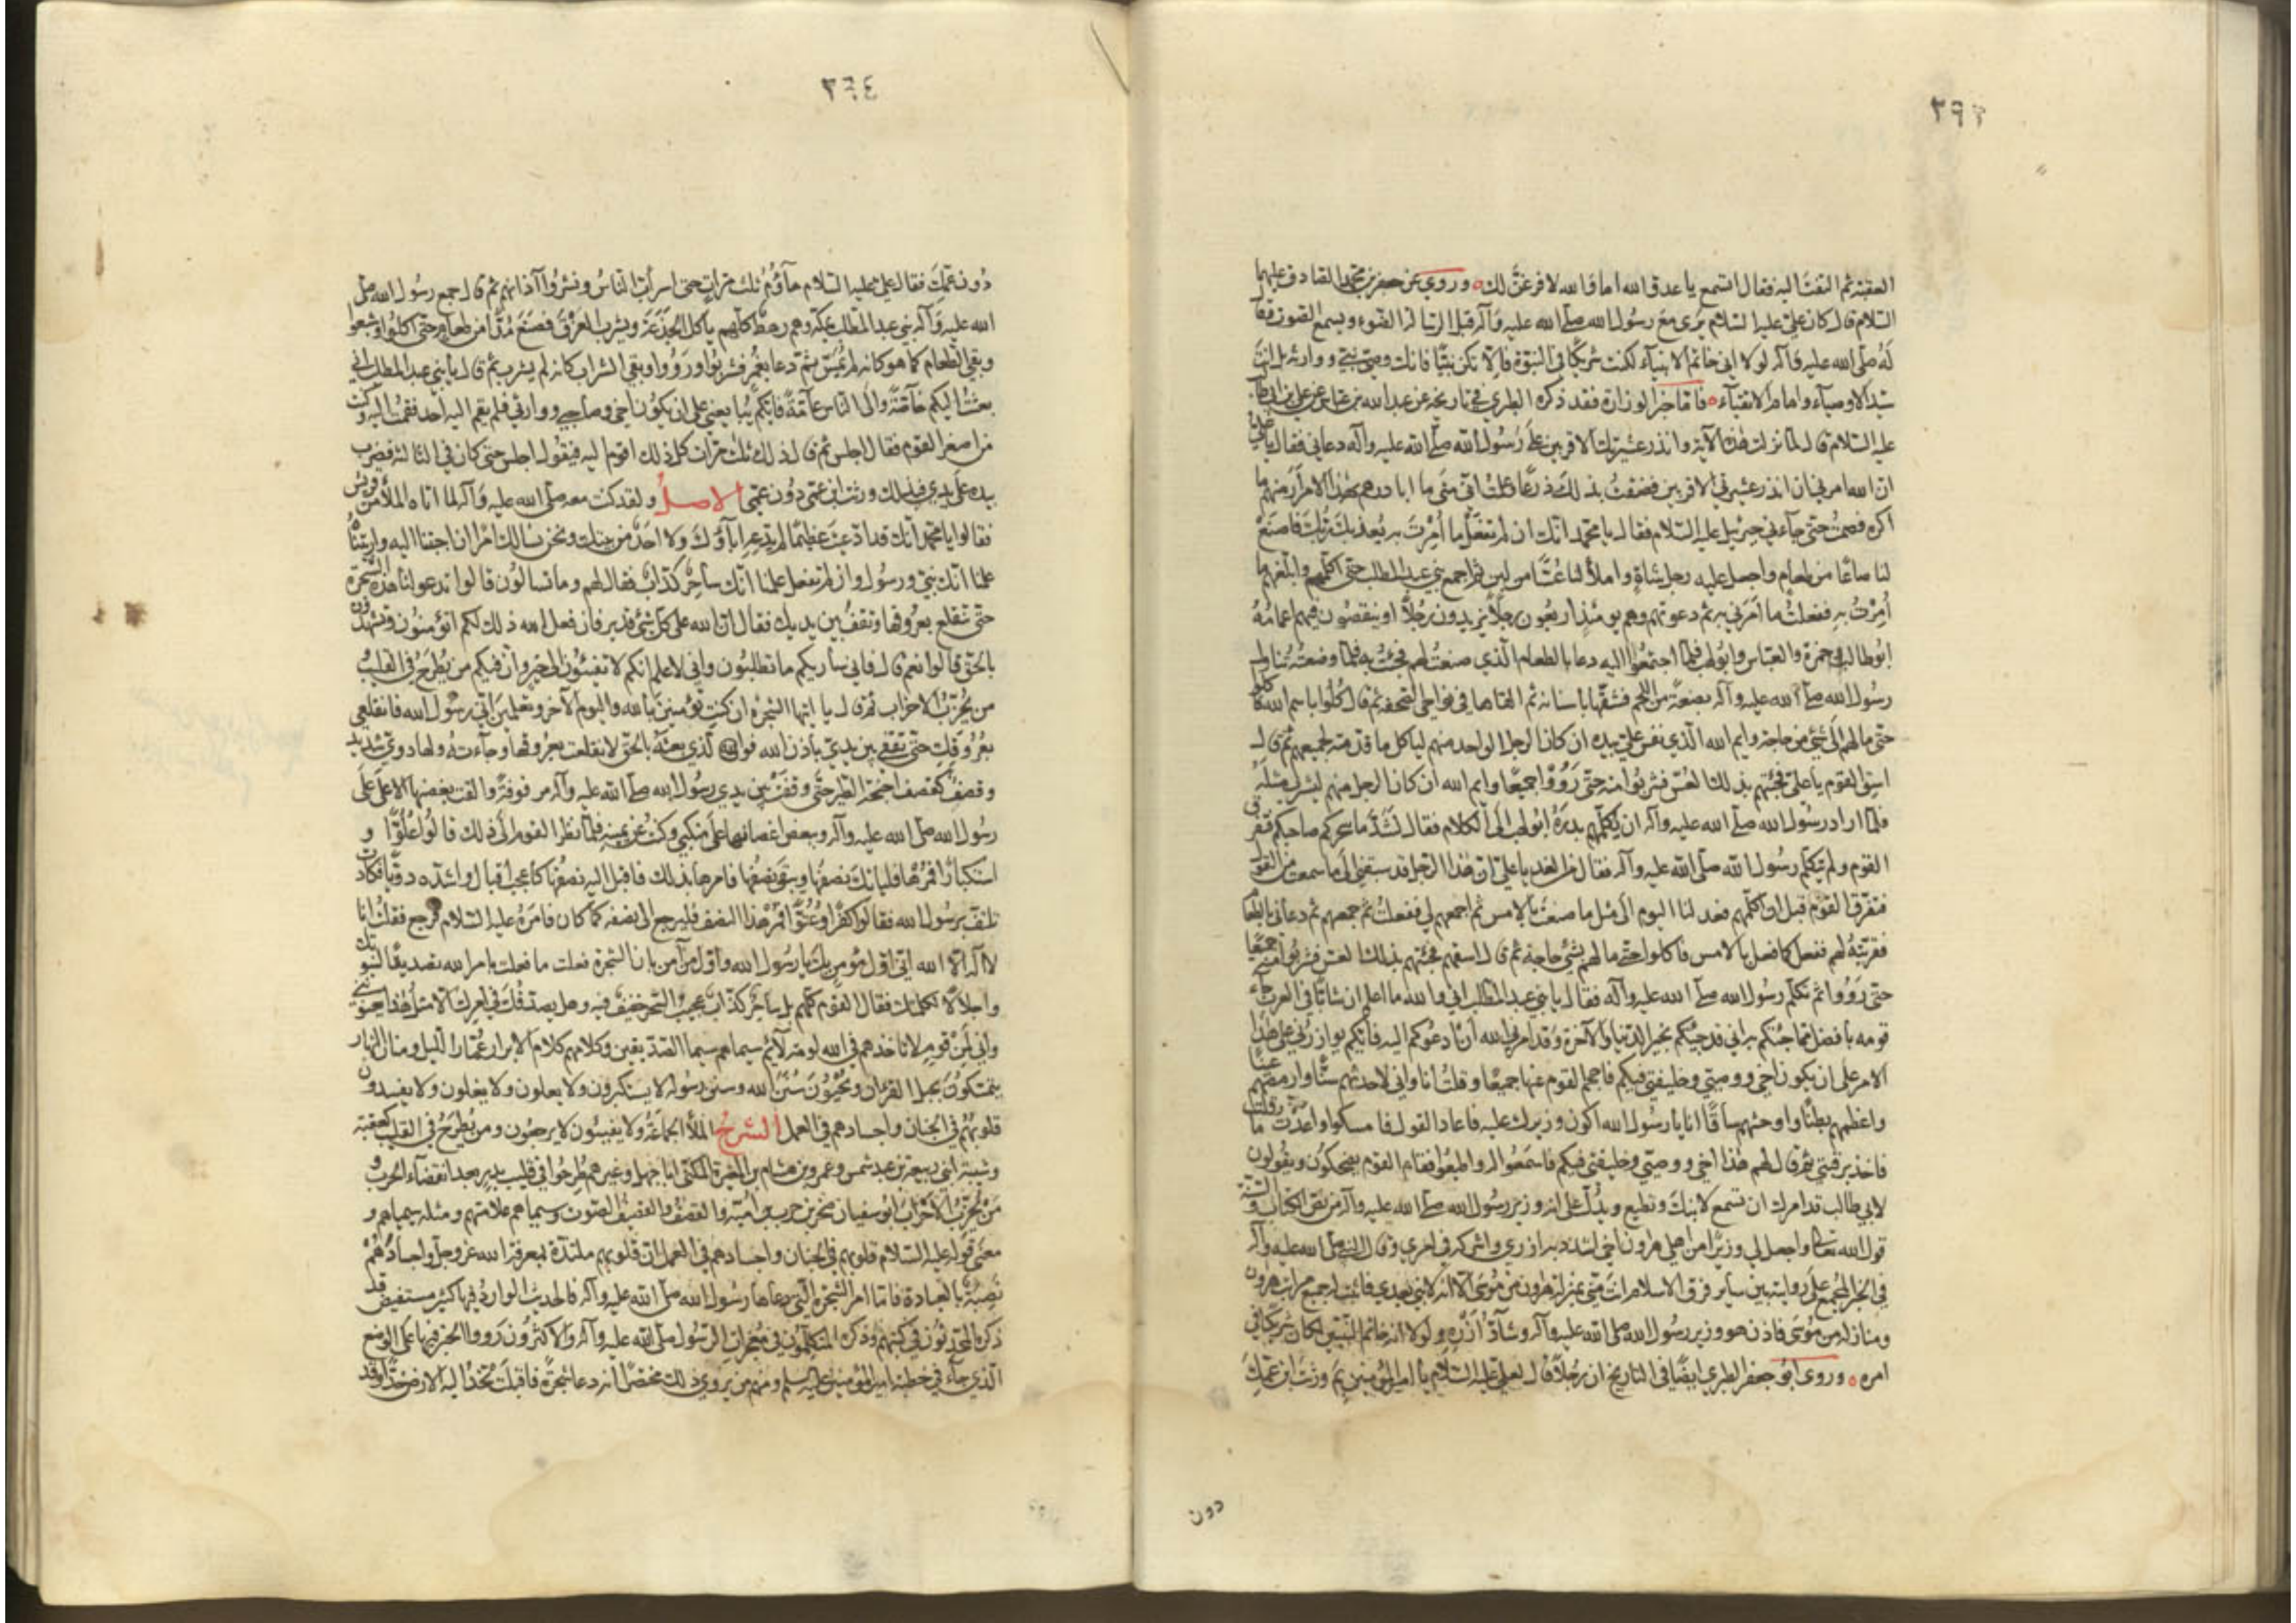 ٣٩٣
العقبة ثم التفت اليه فقال استمع يا عدو الله اما والله لافرغن لك وروي عن جعفر بن محمد الصادق عليهما
السلام قال كان علي عليه السلام يرى مع رسول الله صلى الله عليه وآله قبل الرسالة الضوء ويسمع الصوت وقال
له صلى الله عليه وآله لولا اني خاتم الانبياء لكنت شريكا في النبوة فان لا تكن نبيا فانك وصي نبي ووارثه بل انت
سيد الاوصياء وامام الاتقياء فاما خبر الوزارة فقد ذكره الطبري في تاريخه عن عبد الله بن عباس عن علي بن ابي طالب
عليه السلام قال لما نزلت هذه الآية وانذر عشيرتك الاقربين على رسول الله صلى الله عليه وآله دعاني فقال يا علي
ان الله امرني ان انذر عشيرتي الاقربين فضقت بذلك ذرعا وعلمت اني متى ما ابادرهم بهذا الامر ار منهم ما
اكره فصمت حتى جاءني جبريل عليه السلام فقال يا محمد انك ان لم تفعل ما امرت به يعذبك ربك فاصنع
لنا صاعا من طعام واجعل عليه رجل شاة واملأ لنا عسا من لبن ثم اجمع بني عبد المطلب حتى اكلمهم وابلغهم ما
امرت به ففعلت ما امرني به ثم دعوتهم وهم يومئذ اربعون رجلا يزيدون رجلا او ينقصون فيهم اعمامه
ابو طالب وحمزة والعباس وابو لهب فلما اجتمعوا اليه دعا بالطعام الذي صنعت لهم فجئت به فلما وضعته تناول
رسول الله صلى الله عليه وآله بضعة من اللحم فشقها باسنانه ثم القاها في نواحي الصحفة ثم قال كلوا باسم الله فاكلوا
حتى ما لهم الى شيء من حاجة وايم الله الذي نفس علي بيده ان كان الرجل الواحد منهم لياكل ما قدمته لجميعهم ثم قال
اسق القوم يا علي فجئتهم بذلك العس فشربوا منه حتى رووا جميعا وايم الله ان كان الرجل منهم ليشرب مثله
فلما اراد رسول الله صلى الله عليه وآله ان يكلمهم بدره ابو لهب الى الكلام فقال لشد ما سحركم صاحبكم فتفرق
القوم ولم يكلمهم رسول الله صلى الله عليه وآله فقال من الغد يا علي ان هذا الرجل قد سبقني الى ما سمعت من القول
فتفرق القوم قبل ان اكلمهم فعد لنا اليوم الى مثل ما صنعت بالامس ثم اجمعهم لي ففعلت ثم جمعهم ثم دعاني بالطعام
فقربته لهم ففعل كما فعل بالامس فاكلوا حتى ما لهم بشيء حاجة ثم قال اسقهم فجئتهم بذلك العس فشربوا منه جميعا
حتى رووا ثم تكلم رسول الله صلى الله عليه وآله فقال يا بني عبد المطلب اني والله ما اعلم ان شابا في العرب جاء
قومه بافضل مما جئتكم به اني قد جئتكم بخير الدنيا والآخرة وقد امرني الله ان ادعوكم اليه فايكم يوازرني على هذا
الامر على ان يكون اخي ووصيي وخليفتي فيكم فاحجم القوم عنها جميعا وقلت انا واني لاحدثهم سنا وارمصهم عينا
واعظمهم بطنا واحمشهم ساقا انا يا رسول الله اكون وزيرك عليه فاعاد القول فامسكوا واعدت ما قلت
فاخذ برقبتي ثم قال لهم هذا اخي ووصيي وخليفتي فيكم فاسمعوا له واطيعوا فقام القوم يضحكون ويقولون
لابي طالب قد امرك ان تسمع لابنك وتطيع ويدل على انه وزير رسول الله صلى الله عليه وآله من نص الكتاب والسنة
قول الله تعالى واجعل لي وزيرا من اهلي هرون اخي اشدد به ازري واشركه في امري وقال النبي صلى الله عليه وآله
في الخبر المجمع على روايته بين سائر فرق الاسلام انت مني بمنزلة هرون من موسى الا انه لا نبي بعدي فاثبت له جميع مراتب هرون
ومنازله من موسى فاذن هو وزير رسول الله صلى الله عليه وآله وشاد ازره ولولا انه خاتم النبيين لكان شريكا في
امره وروى ابو جعفر الطبري ايضا في التاريخ ان رجلا قال لعلي عليه السلام يا امير المؤمنين بم ورثت ابن عمك
دون
٣٦٤
دون عمك فقال علي عليه السلام هاؤم ثلث مرات حتى اسرأب الناس ونشروا آذانهم ثم قال جمع رسول الله صلى
الله عليه وآله بني عبد المطلب بمكة وهم رهط كلهم ياكل الجذعة ويشرب الفرق فصنع مدا من طعام حتى اكلوا وشبعوا
وبقي الطعام كما هو كانه لم يمس ثم دعا بغمر فشربوا ورووا وبقي الشراب كانه لم يشرب ثم قال يا بني عبد المطلب اني
بعثت اليكم خاصة والى الناس عامة فايكم يبايعني على ان يكون اخي وصاحبي ووارثي فلم يقم اليه احد فقمت اليه وكنت
من اصغر القوم فقال اجلس ثم قال ذلك ثلث مرات كل ذلك اقوم اليه فيقول اجلس حتى كان في الثالثة فضرب
بيده على يدي فبذلك ورثت ابن عمي دون عمي الاصل ولقد كنت معه صلى الله عليه وآله لما اتاه الملأ من قريش
فقالوا يا محمد انك قد ادعيت عظيما لم يدعه آباؤك ولا احد من بيتك ونحن نسالك امرا ان اجبتنا اليه واريتناه
علمنا انك نبي ورسول وان لم تفعل علمنا انك ساحر كذاب فقال لهم وما تسالون قالوا تدعو لنا هذه الشجرة
حتى تنقلع بعروقها وتقف بين يديك فقال ان الله على كل شيء قدير فان فعل الله ذلك لكم اتؤمنون وتشهدون
بالحق قالوا نعم قال فاني ساريكم ما تطلبون واني لاعلم انكم لا تفيئون الى خير وان فيكم من يطرح في القليب
من يحزب الاحزاب ثم قال يا ايتها الشجرة ان كنت تؤمنين بالله واليوم الآخر وتعلمين اني رسول الله فانقلعي
بعروقك حتى تقفي بين يدي باذن الله فوالله الذي بعثه بالحق لانقلعت بعروقها وجاءته ولها دوي شديد
وقصف كقصف اجنحة الطير حتى وقفت بين يدي رسول الله صلى الله عليه وآله مرفوفة والقت بغصنها الاعلى على
رسول الله صلى الله عليه وآله وببعض اغصانها على منكبي وكنت عن يمينه فلما نظر القوم الى ذلك قالوا علوا و
استكبارا فمرها فلياتك نصفها ويبقى نصفها فامرها بذلك فاقبل اليه نصفها كاعجب اقبال واشده دويا فكادت
تلتف برسول الله فقالوا كفرا وعتوا فمر هذا النصف فليرجع الى نصفه كما كان فامره عليه السلام فرجع فقلت انا
لا اله الا الله اني اول مؤمن بك يا رسول الله واول من آمن بان الشجرة فعلت ما فعلت بامر الله تصديقا لنبوتك
واجلالا لكلمتك فقال القوم كلهم بل ساحر كذاب عجيب السحر خفيف فيه وهل يصدقك في امرك الا مثل هذا يعنونني
واني لمن قوم لا تاخذهم في الله لومة لائم سيماهم سيما الصديقين وكلامهم كلام الابرار عمار الليل ومنار النهار
يتمسكون بحبل القرآن ويحيون سنن الله وسنن رسوله لا يستكبرون ولا يعلون ولا يغلون ولا يفسدون
قلوبهم في الجنان واجسادهم في العمل الشرح الملأ الجماعة ولا يفيئون لا يرجعون ومن يطرح في القليب كعتبة
وشيبة ابني ربيعة بن عبد شمس وعمرو بن هشام بن المغيرة المكنى ابا جهل وغيرهم طرحوا في قليب بدر بعد انقضاء الحرب و
من يحزب الاحزاب ابو سفيان صخر بن حرب بن امية والقصف والقصيف الصوت وسيماهم علامتهم ومثله سيمياهم و
معنى قوله عليه السلام قلوبهم في الجنان واجسادهم في العمل ان قلوبهم ملتذة بمعرفة الله عز وجل واجسادهم
نصبة بالعبادة فاما امر الشجرة التي دعاها رسول الله صلى الله عليه وآله فالحديث الوارد فيها كثير مستفيض قد
ذكره المحدثون في كتبهم وذكره المتكلمون في معجزات الرسول صلى الله عليه وآله والاكثرون رووا الخبر فيها على الوضع
الذي جاء في خطبة امير المؤمنين عليه السلم ومنهم من يروي ذلك مختصرا انه دعا شجرة فاقبلت تخد اليه الارض خدا وقد